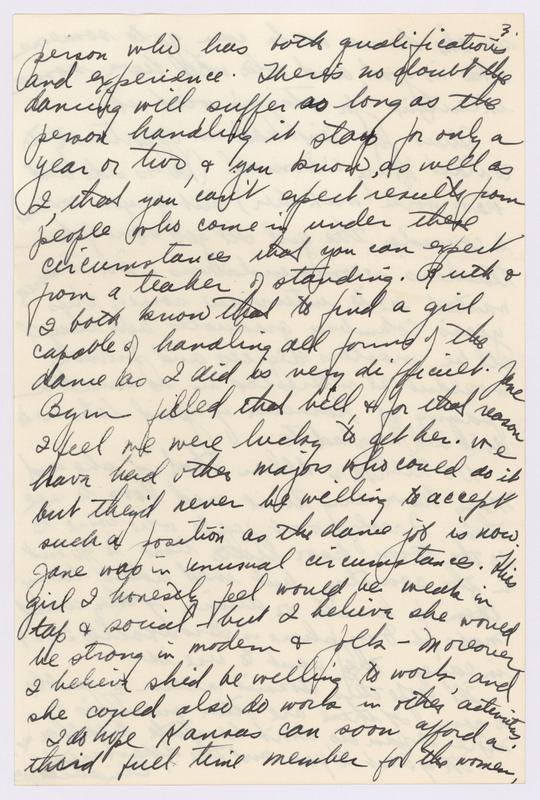 3.
person who has both qualifications
and experience. There's no doubt the
dancing will suffer so long as the
person handling it stays for only a
year or two, & you know, as well as
I, that you can't expect results from
people who come in under these
circumstances that you can expect
from a teacher of standing. Ruth &
I both know that to find a girl
capable of handling all forms of the
dance as I did is very difficult. Jane
Byrn filled that bill, & for that reason
I feel we were lucky to get her. We
have had other majors who could do it
but they'd never be willing to accept
such a position as the dance job is now.
Jane was in unusual circumstances. This
girl I honestly feel would be weak in
tap & social - but I believe she would
be strong in modern & folk - Moreover
I believe she'd be willing to work, and
she could also do work in other activities.
I do hope Kansas can soon afford a
third full time member for the women,